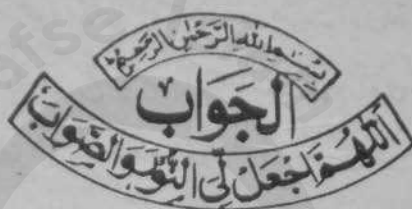 بسم الله الرحمن الرحيم
الجَوَاب
اَللّٰهُمَّ اجْعَلْ لِّىَ النُّوْرَ وَالصَّوَابَ